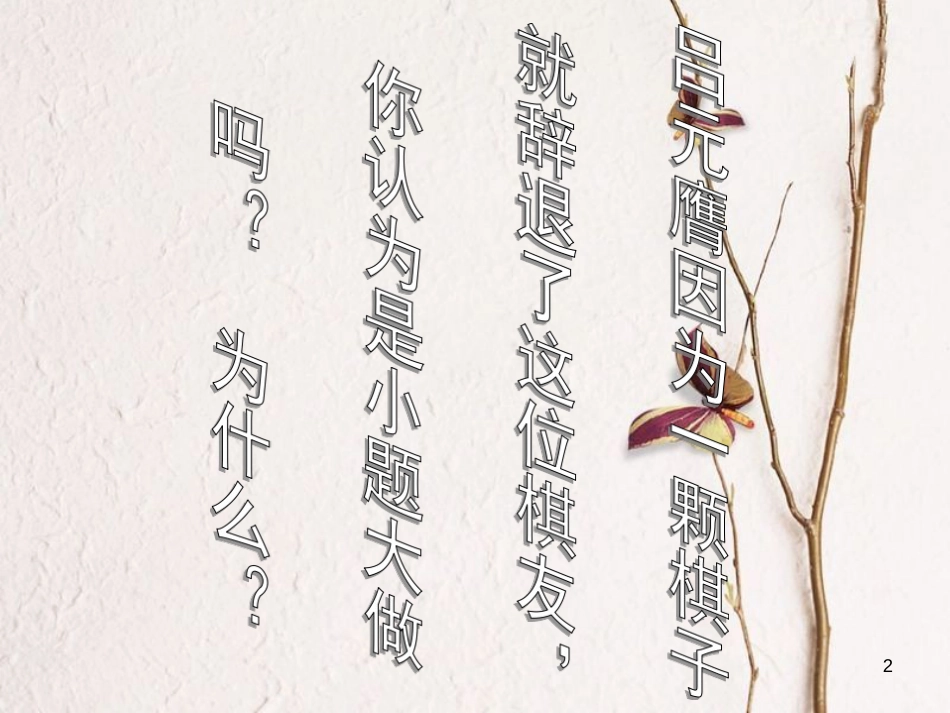 吕元膺因为一颗棋子
就辞退了这位棋友，
你认为是小题大做
吗？ 为什么？
2